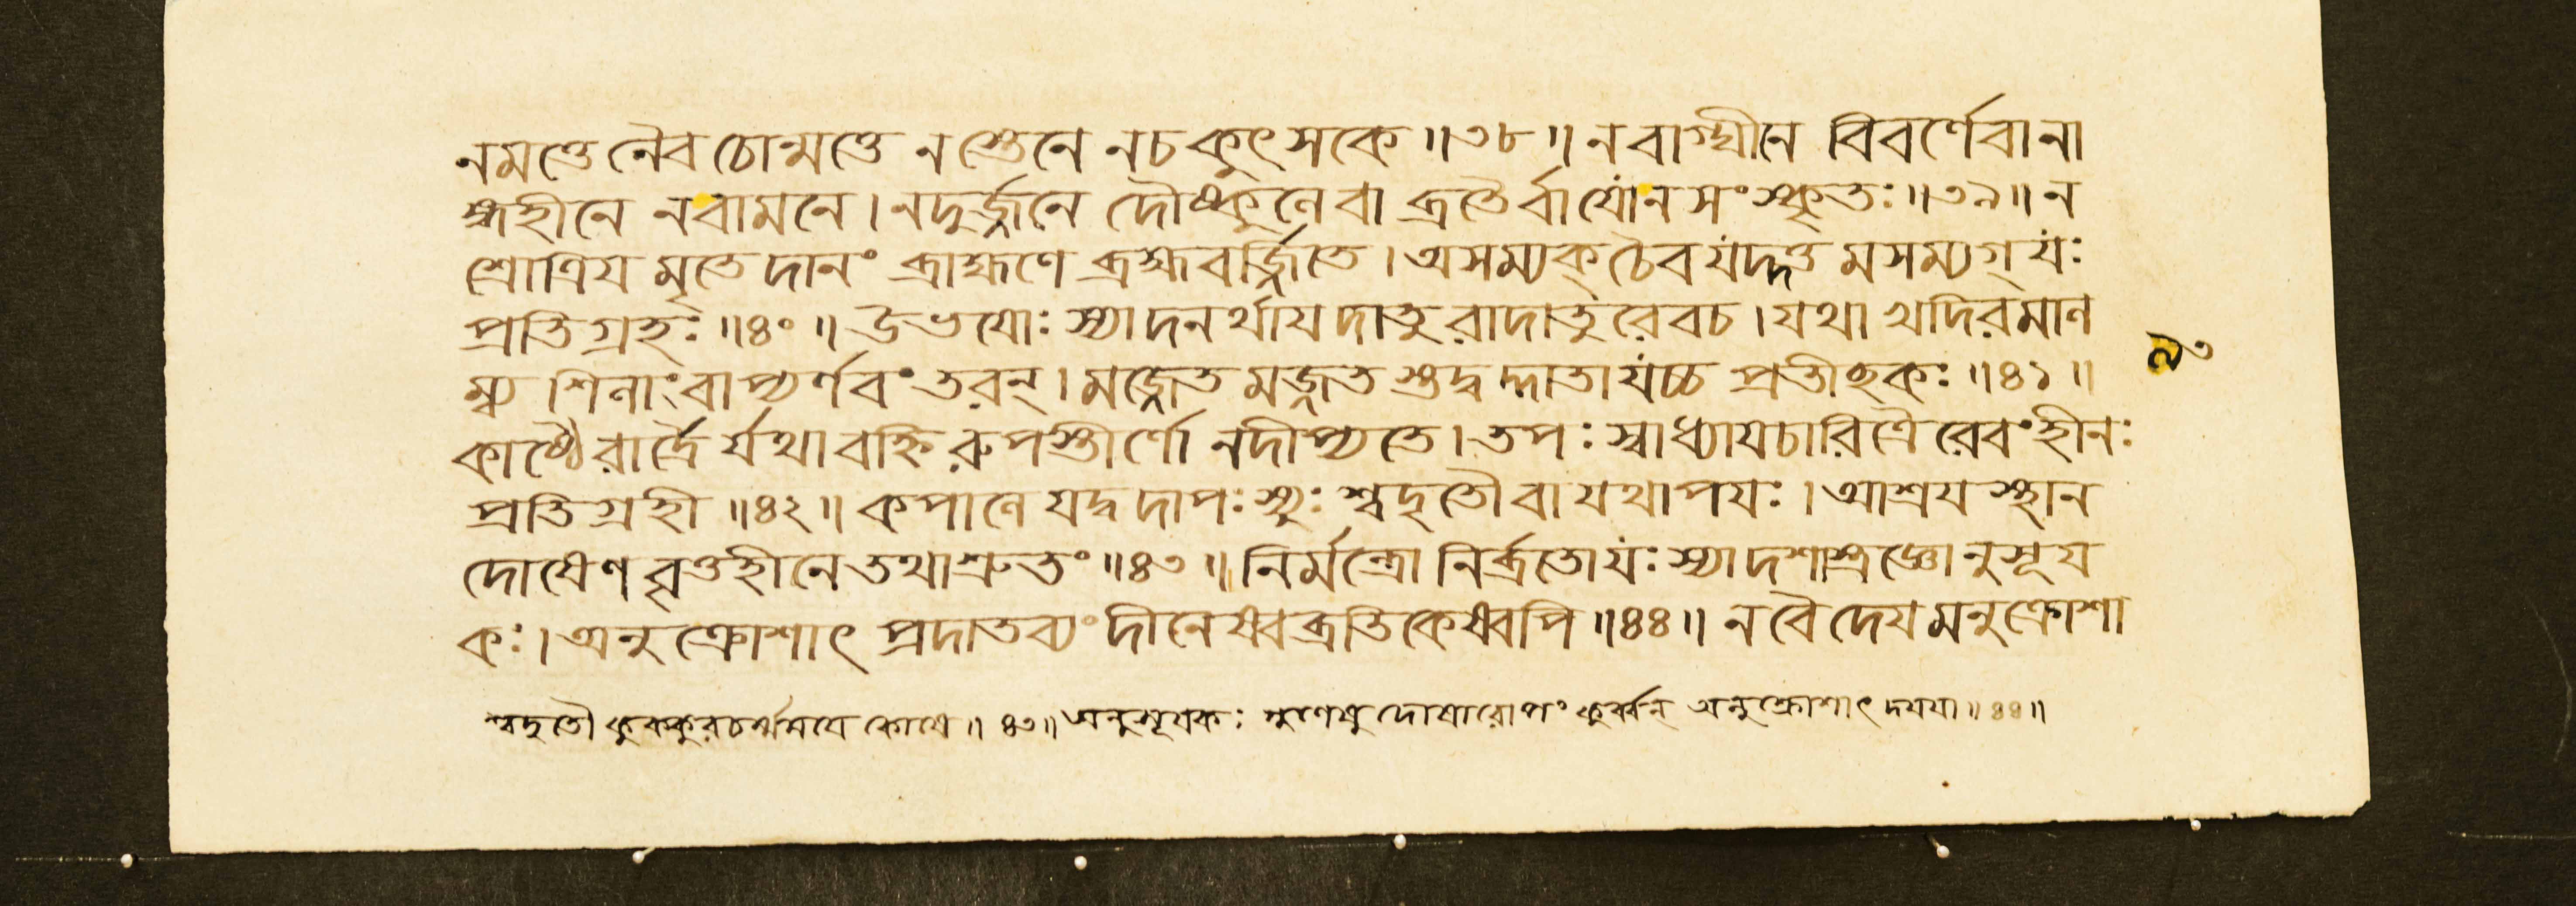 নমত্তে নৈব চোন্মত্তে ন স্তেনে ন চ কুৎসকে ॥৩৮॥ ন বাগ্ঘীনে বিবর্ণে বা না
ঙ্গহীনে ন বামনে । ন দুর্জ্জনে দৌষ্কুলে বা ব্রতৈর্বা যো ন সংস্কৃতঃ ॥৩৯॥ ন
শ্রোত্রিয মৃতে দানং ব্রাহ্মণে ব্রহ্মবর্জ্জিতে । অসম্যক্ চৈব যদ্দত্ত মসম্যগ্ যঃ
প্রতিগ্রহঃ ॥৪০॥ উভযোঃ স্যাদনর্থায দাতু রাদাতু রেব চ । যথা খদিরমাল
ম্ব্য শিলাং বাপ্যর্ণবং তরন্ । মজ্জেত মজ্জত স্তদ্বদ্দাতা যচ্চ প্রতীছকঃ ॥৪১॥
কাষ্ঠৈ রার্দ্রৈ র্যথা বহ্নি রুপস্তীর্ণো ন দীপ্যতে । তপঃ স্বাধ্যাযচারিত্রৈ রেবং হীনঃ
প্রতিগ্রহী ॥৪২॥ কপালে যদ্বদাপঃ স্যুঃ শ্বদৃতৌ বা যথা পযঃ । আশ্রয স্থান
দোষেণ বৃত্তহীনে তথা শ্রুতং ॥৪৩॥ নির্মন্ত্রো নির্ব্রতো যঃ স্যাদশাস্ত্রজ্ঞোনুসূয
কঃ । অনুক্রোশাৎ প্রদাতব্যং দীনেষ্বব্রতিকেষ্বপি ॥৪৪॥ ন বৈ দেয মনুক্রোশা
৯৩
শ্বদৃতৌ কুক্কুরচর্ম্মমযে কোষে ॥ ৪৩॥ অনুসূযকঃ গুণেষু দোষারোপং কুর্ব্বন্ অনুক্রোশাৎ দযযা ॥ ৪৪॥